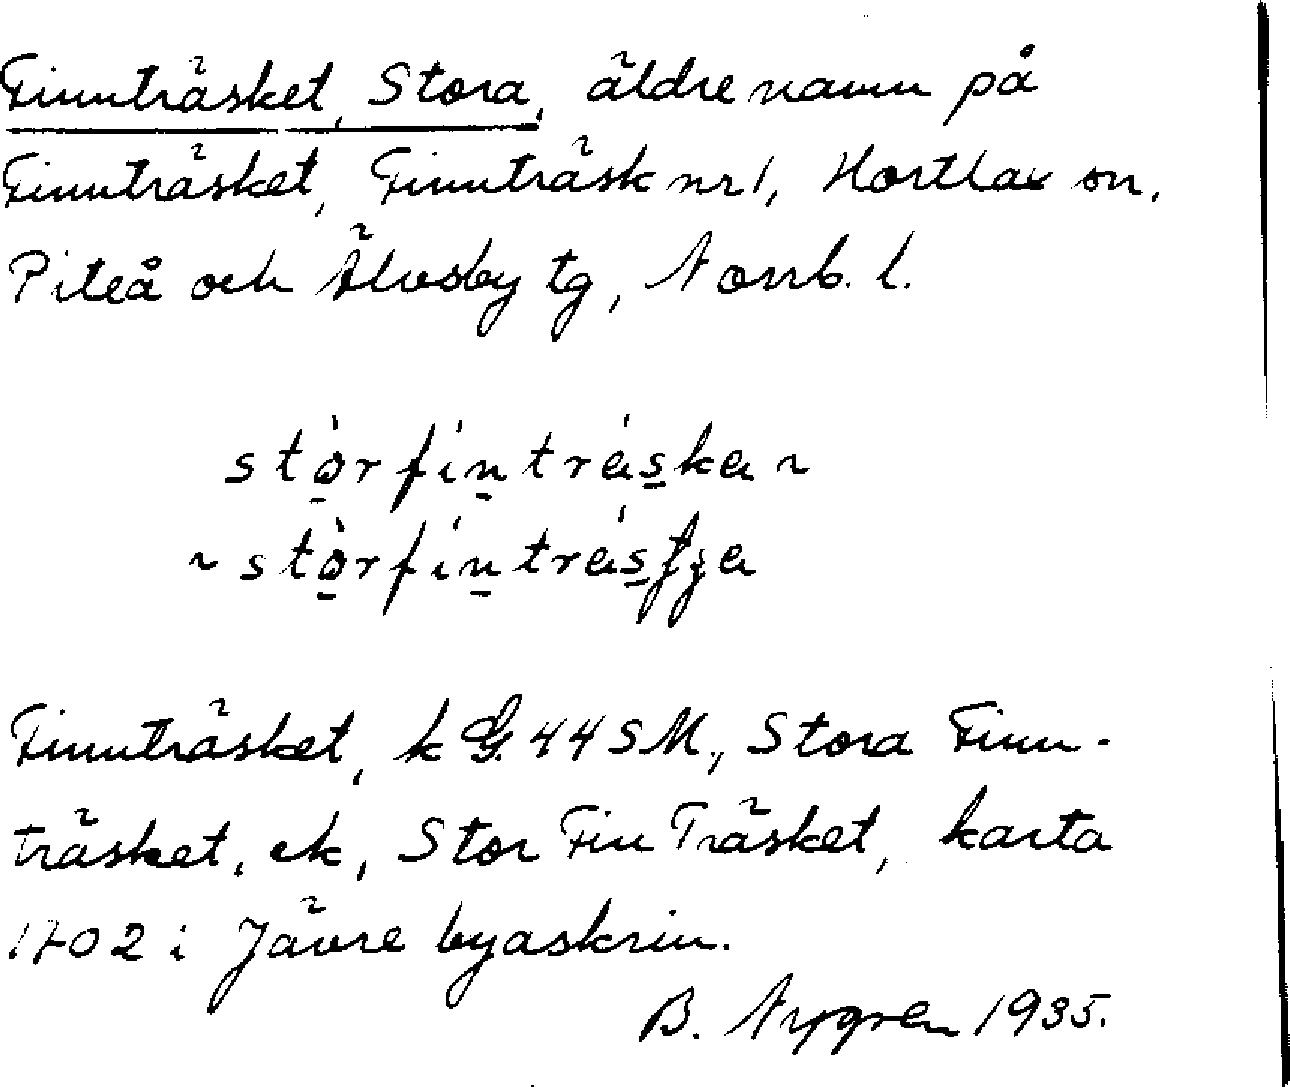 Finnträsket, Stora, äldre namn på
Finnträsket, Finnträsk nr 1, Hortlax sn,
Piteå och Älvsby tg, Norrb. l.
stòrfíntráska ~
~ stòrfíntrásʃʒa
Finnträsket, k G. 44 SM., Stora Finn-
träsket, ek, Stor Fin Träsket, karta
1702 i Jävre byaskrin.
B. Nygren 1935.